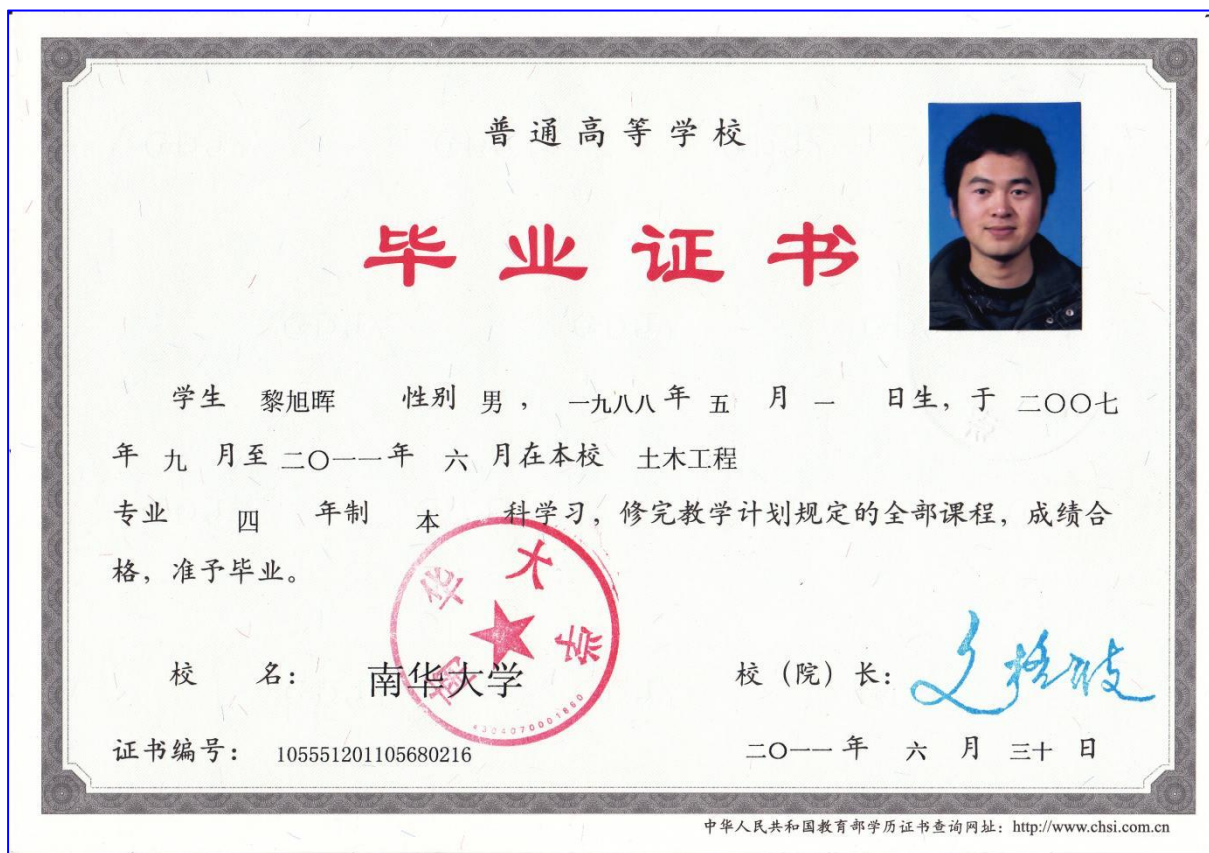 普通高等学校
毕业证书
学生 黎旭晖 性别 男 ， 一九八八 年 五 月 一 日生，于 二〇〇七
年 九 月至 二〇一一 年 六 月在本校 土木工程
专业 四 年制 本 科学习，修完教学计划规定的全部课程，成绩合
格，准予毕业。
南华大学
4304070001850
校 名： 南华大学 校（院）长：
证书编号： 105551201105680216 二〇一一 年 六 月 三十 日
中华人民共和国教育部学历证书查询网址：http://www.chsi.com.cn